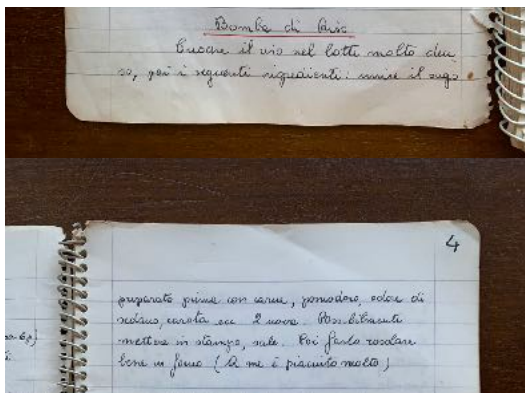 Bomba di Riso
Cuocere il riso nel latte molto den
so, poi i seguenti ingredienti: unire il sugo
4
preparato prima con carne, pomodoro, odore di
sedano, carota ecc 2 uova. Possibilmente
mettere in stampo, sale. Poi farlo rosolare
bene in forno (A me è piaciuto molto)